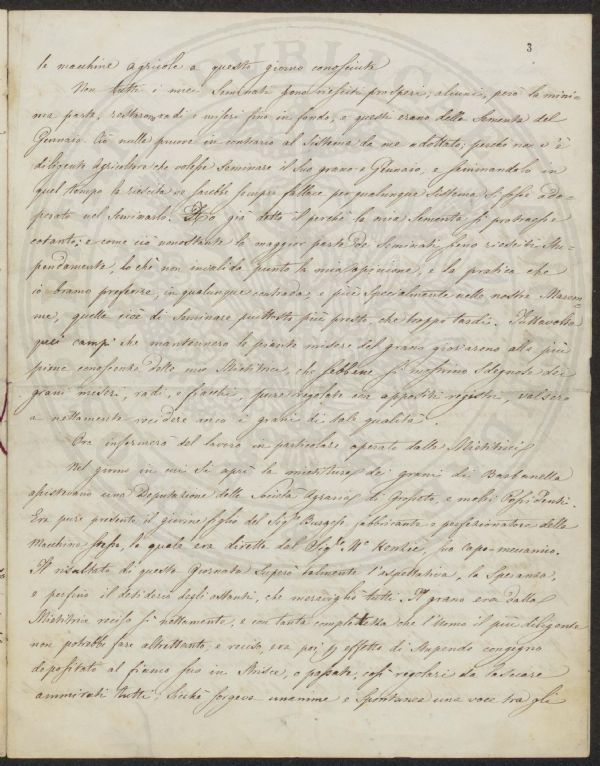 3
le macchine agricole a questo giorno conosciute
Non tutti i miei Seminati sono riesciti prosperi; alcuni, però la mini-
ma parte, restarono radi e miseri fino in fondo, e questi erano della Sementa del
Gennaio. Ciò nulla prova in contrario al Sistema da me adottato, perchè non v'è
diligente Agricoltore che volesse Seminare il Suo grano a Gennaio, e seminandolo in
quel tempo la riescita ne sarebbe sempre fallace per qualunque Sistema Si fosse ado-
perato nel Seminarlo. Ho già detto il perchè la mia Sementa Si protraesse
cotanto; e come ciò nonostante la maggior parte dei Seminati Sieno riesciti Stu-
pendamente, lo chè non invalida punto la mia opinione, e la pratica che
io bramo preferire, in qualunque contrada, e più Specialmente nelle nostre Marem-
me, quella cioè di Seminare piuttosto più presto, che troppo tardi. Tuttavolta
quei campi che mantennero le piante misere del grano giovarono alla più
piena conoscenza della mia Mietitrice, che sebbene Si mostrino Sdegnose dei
grani miseri, radi, e fiacchi, pure regolate con appositi registri, valsero
a nettamente recidere anco i grani di tali qualità.
Ora informerò del lavoro in particolare operato dalle Mietitrici
Nel giorno in cui Si aprì la mietitura dei grani di Barbanella
assistevano una Deputazione della Società Agraria di Grosseto, e molti Possidenti.
Era pure presente il giovine figlio del Sigr. Burgess, fabbricante e perfezionatore della
Macchina stessa, la quale era diretta dal Sigr. Mc Kenzie, suo capo-meccanico.
Il risultato di questa Giornata Superò talmente l'aspettativa, la Speranza,
e persino il desiderio degli astanti, che meravigliò tutti. Il grano era dalla
Mietitrice reciso sì nettamente, e con tanta completezza che l'Uomo il più diligente
non potrebbe fare altrettanto, e reciso, era poi per effetto di Stupendo congegno
depositato al fianco suo in Strisce, o passate, così regolari da lasciare
ammirati tutti; Sicchè sorgeva unanime e Spontanea una voce tra gli